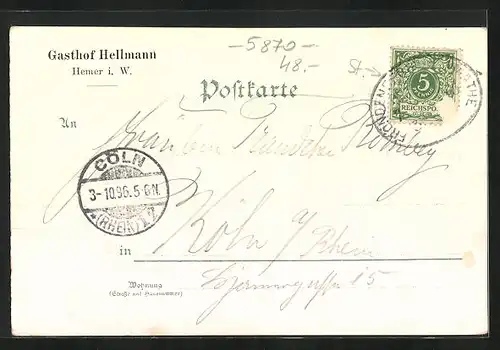 Gasthof Hellmann
Hemer i. W.
-5870-
48.-
St.
Postkarte
5
REICHSPO
FRÖNDEN
An
Fräulein
CÖLN
3-10.96.5-6N.
(RHEIN) 1.Z
Köln a/ Rhein
in
15
Wohnung
(Straße und Hausnummer)